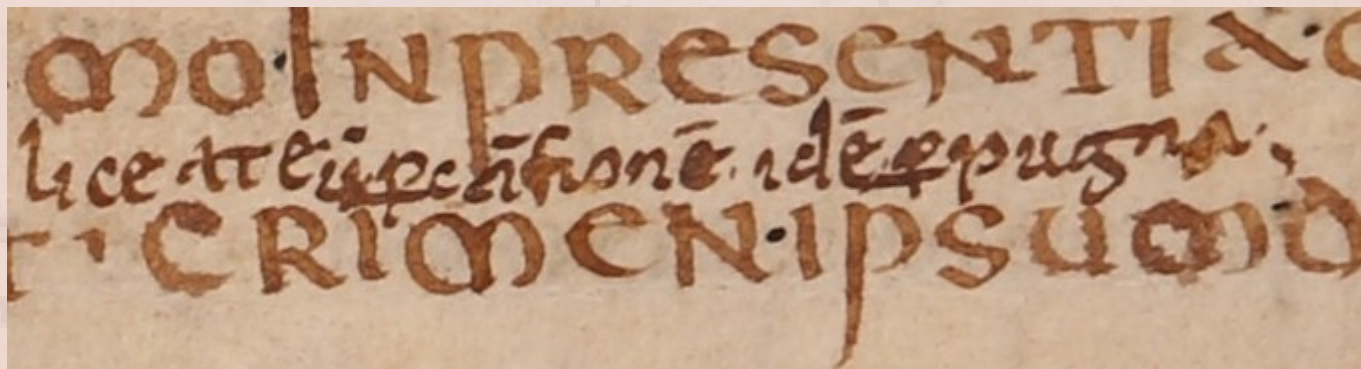 mo·IN PRESENTIA·
lice at eū p cātionē. idē p pugna·
T· CRIMEN·IPSUM